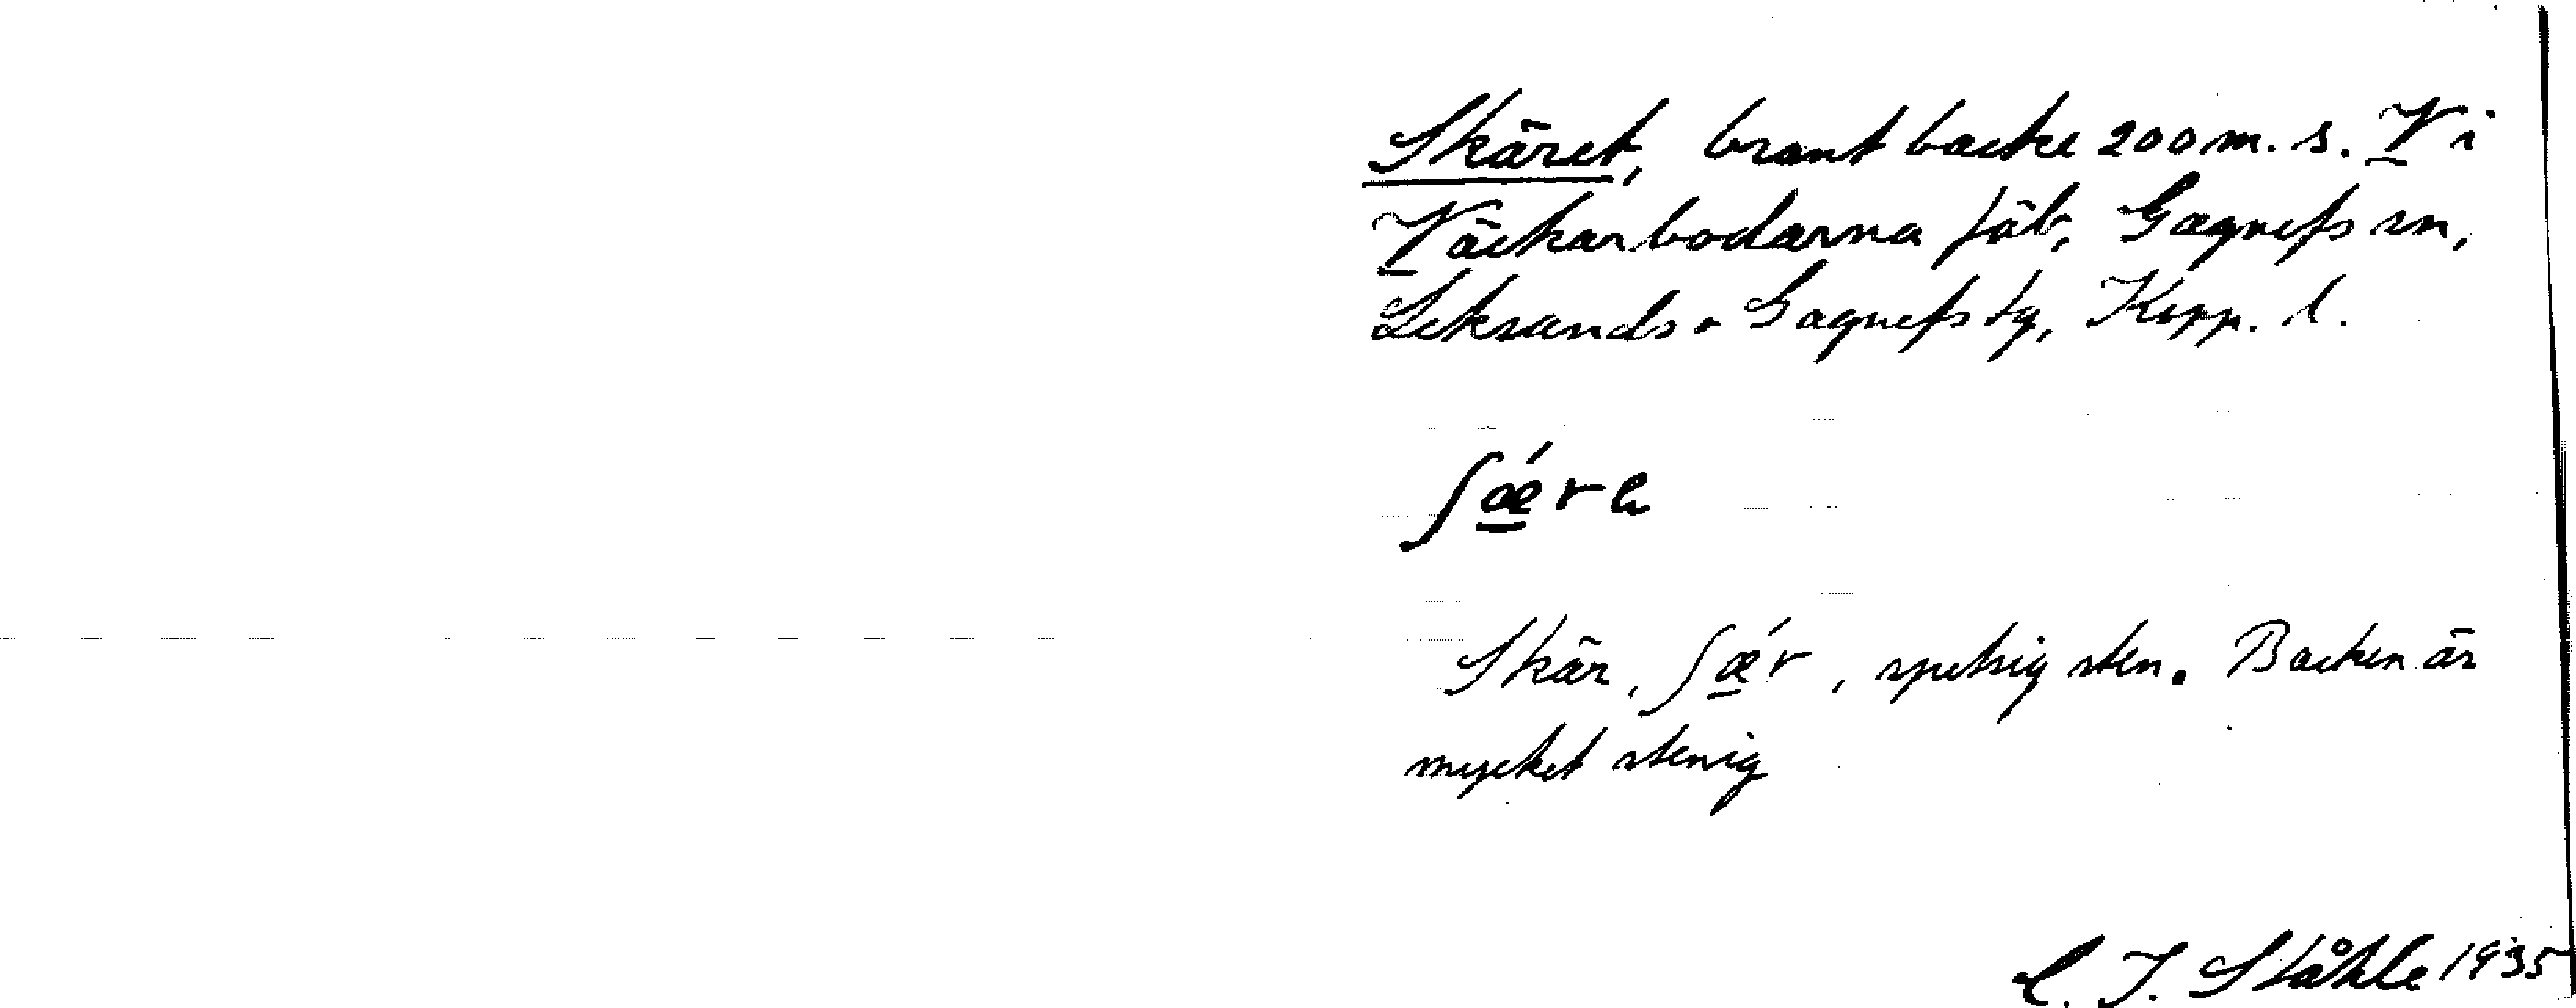 Skäret, brant backe 200 m. s. V i
Väckarbodarna fäb, Gagnefs sn,
Leksands o Gagnefs tg, Kopp. l.
ʃǽrɐ
Skär, ʃǽr, spetsig sten. Backen är
mycket stenig
C. I. Ståhle 1935